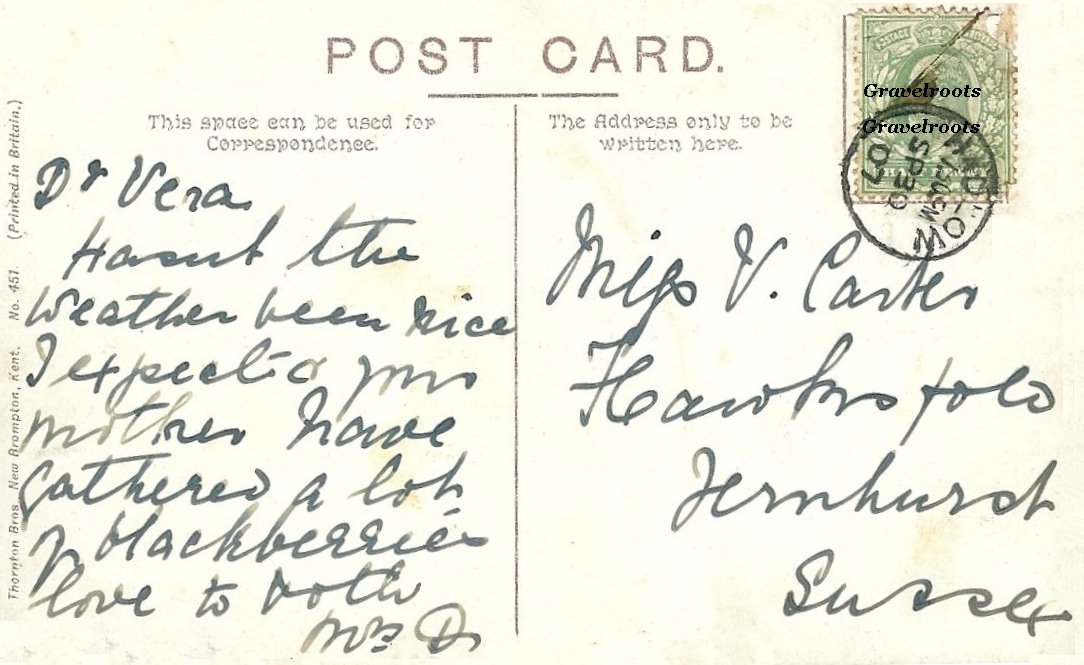 POST CARD.
This space can be used for
Correspondence.
The Address only to be
written here.
Dr Vera
Hasnt the
weather been nice
I expect
mother have
gathered a lot
of blackberries
love to both
Miss V. Carter
Hawksfold
Fernhurst
Sussex
POSTAGE
HALF PENNY
Gravelroots
Gravelroots
HADLOW
SP 30
07
Thornton Bros., New Brompton, Kent. No. 451. (Printed in Britain.)